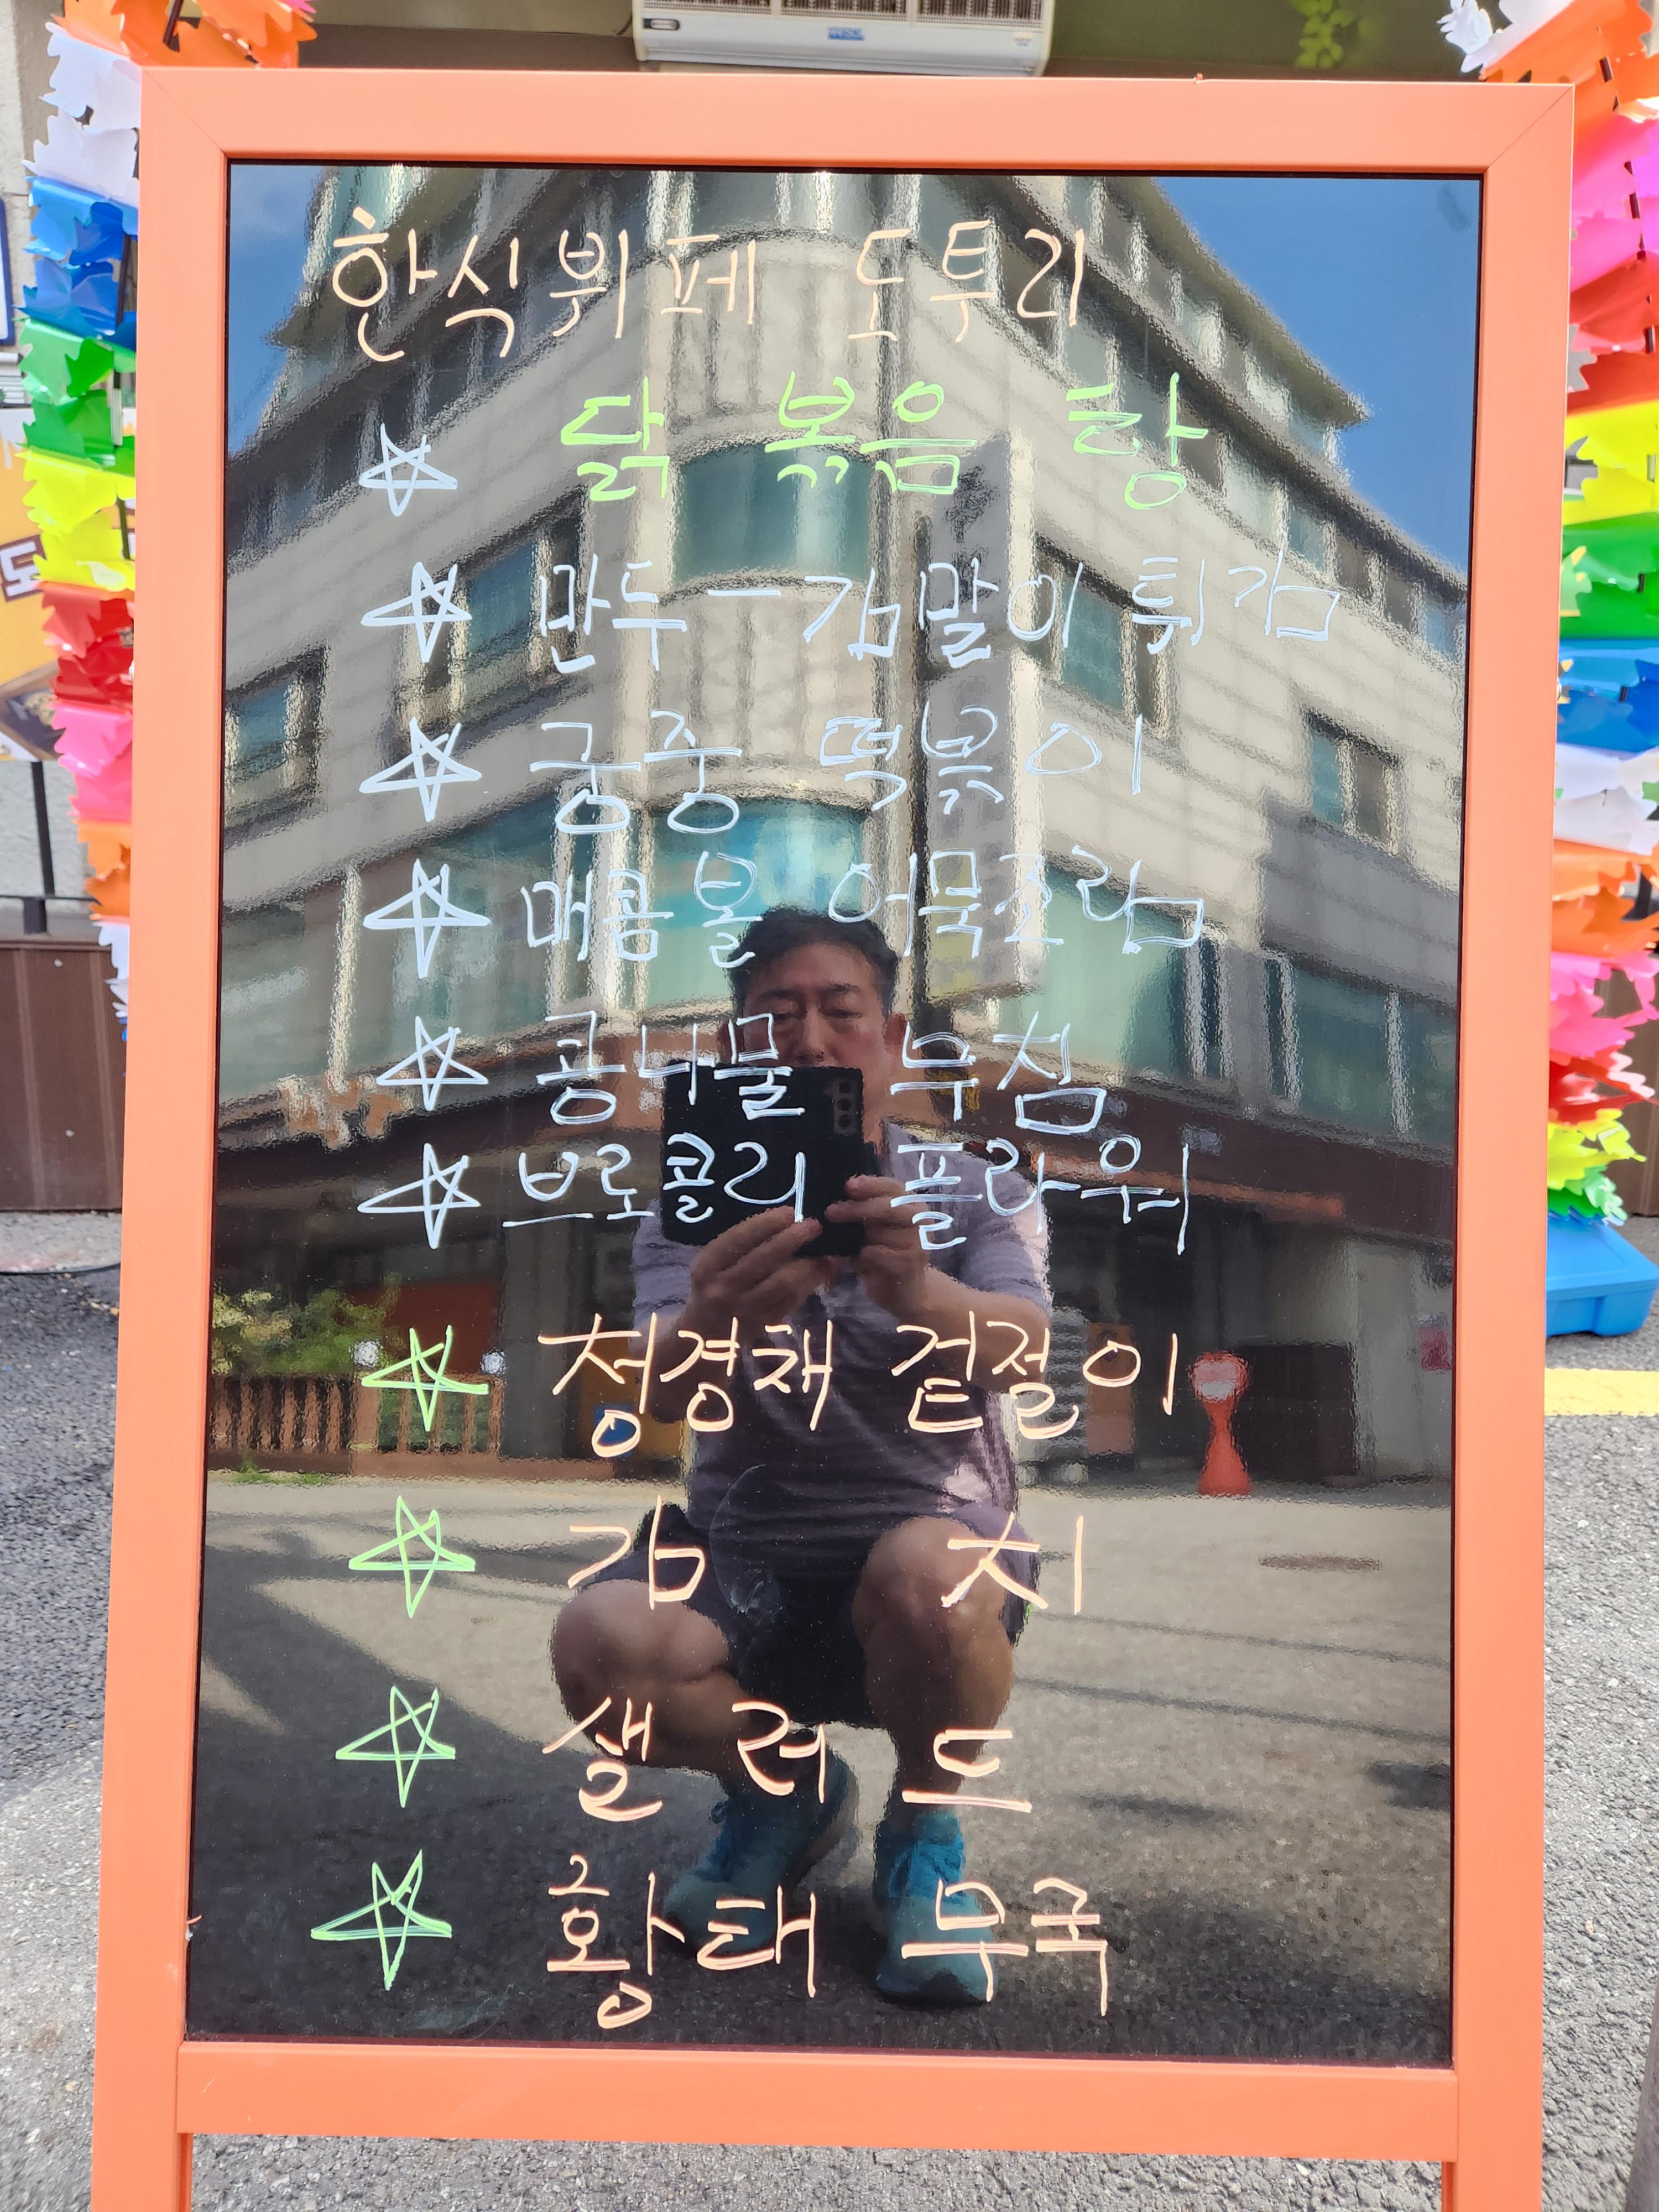 한식뷔페 도투리
☆ 닭 볶음 탕
☆ 만두-김말이 튀김
☆ 궁중 떡볶이
☆ 매콤 볼 어묵조림
☆ 콩나물 무침
☆ 브로콜리 플라워
☆ 청경채 겉절이
☆ 김 치
☆ 샐러드
☆ 황태 무국